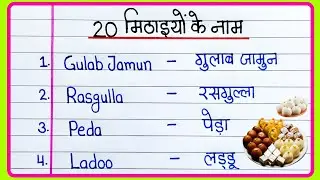 20 मिठाइयों के नाम
1. Gulab Jamun - गुलाब जामुन
2. Rasgulla - रसगुल्ला
3. Peda - पेड़ा
4. Ladoo - लड्डू